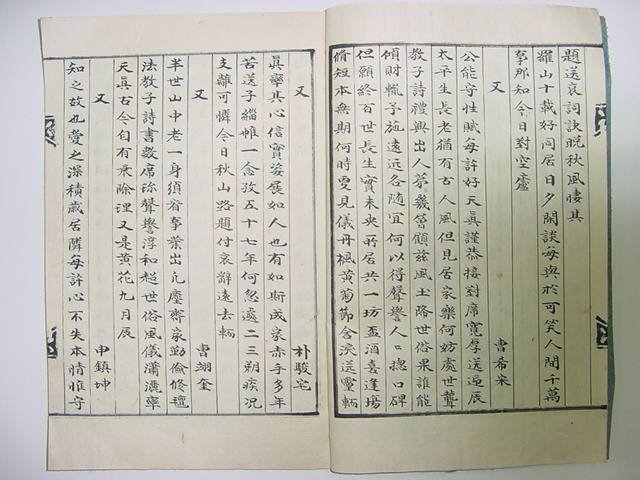 題送哀詞訣晩秋風悽其
羅山十載好同居日夕閑談每與於可笑人間千萬
事那知今日對空廬
曺希宋
又
公能守性賦每許好天眞謹恭接對席寬厚送迎辰
太平生長老猶有古人風但見居家樂何妨處世聾
敎子詩禮興出人茅幾曾顧玆風土降世俗果誰能
傾財報予施遠近各隨宜何以得聲譽人口摠口碑
但願終百世長生實未央所居共一坊盃酒喜逢場
脩短本無期何時更見儀丹楓黃菊節含淚送靈輀
又
眞率其心信實姿展如人也有如斯成家赤手多年
苦送子緇帷一念孜五十七年何忽遽二三朔疾况
支離可憐今日秋山路題付哀辭遠去輀
朴駿宅
又
曺翊奎
半世山中老一身須看事業出凡塵齊家勤儉修禮
法敎子詩書數席珎聲譽淳和超世俗風儀瀟灑率
天眞古今自有乘除理又是黃花九月辰
又
申鎭坤
知之故也愛之深積歲居隣每許心不失本情惟守